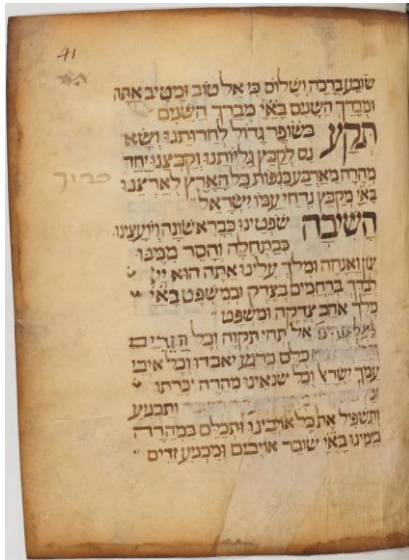 41
שובע ברכה ושלום כי אל טוב ומטיב אתה
ומברך השנים באי מברך השנים
תקע בשופר גדול לחרותנו ושא
נס לקבץ גליותנו וקבצנו יחד
מהרה מארבע כנפות כל הארץ לארצנו
באי מקבץ נדחי עמו ישראל
השיבה שפטינו כבראשונה ויועצינו
כבתחלה והסר ממנו
יגון ואנחה ומלך עלינו אתה הוא יי
לבדך ברחמים בצדק ובמשפט באי
מלך אהב צדקה ומשפט
אל תהי תקוה וכל הזדים
כלם כרגע יאבדו וכל איבי
עמך ישראל וכל שנאינו מהרה יכרתו
ותכניע
ותשפיל את כל אויבינו ותכלם במהרה
בימינו באי שובר אויבים ומכניע זדים